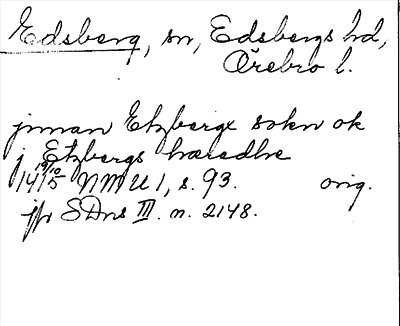 Edsberg, sn, Edsbergs hd,
Örebro l.
jnnan Etzberge sokn ok
j Etzbergs hæradhe
19/10
1415 NMU 1, s. 93. orig.
jfr SDns III. n. 2148.